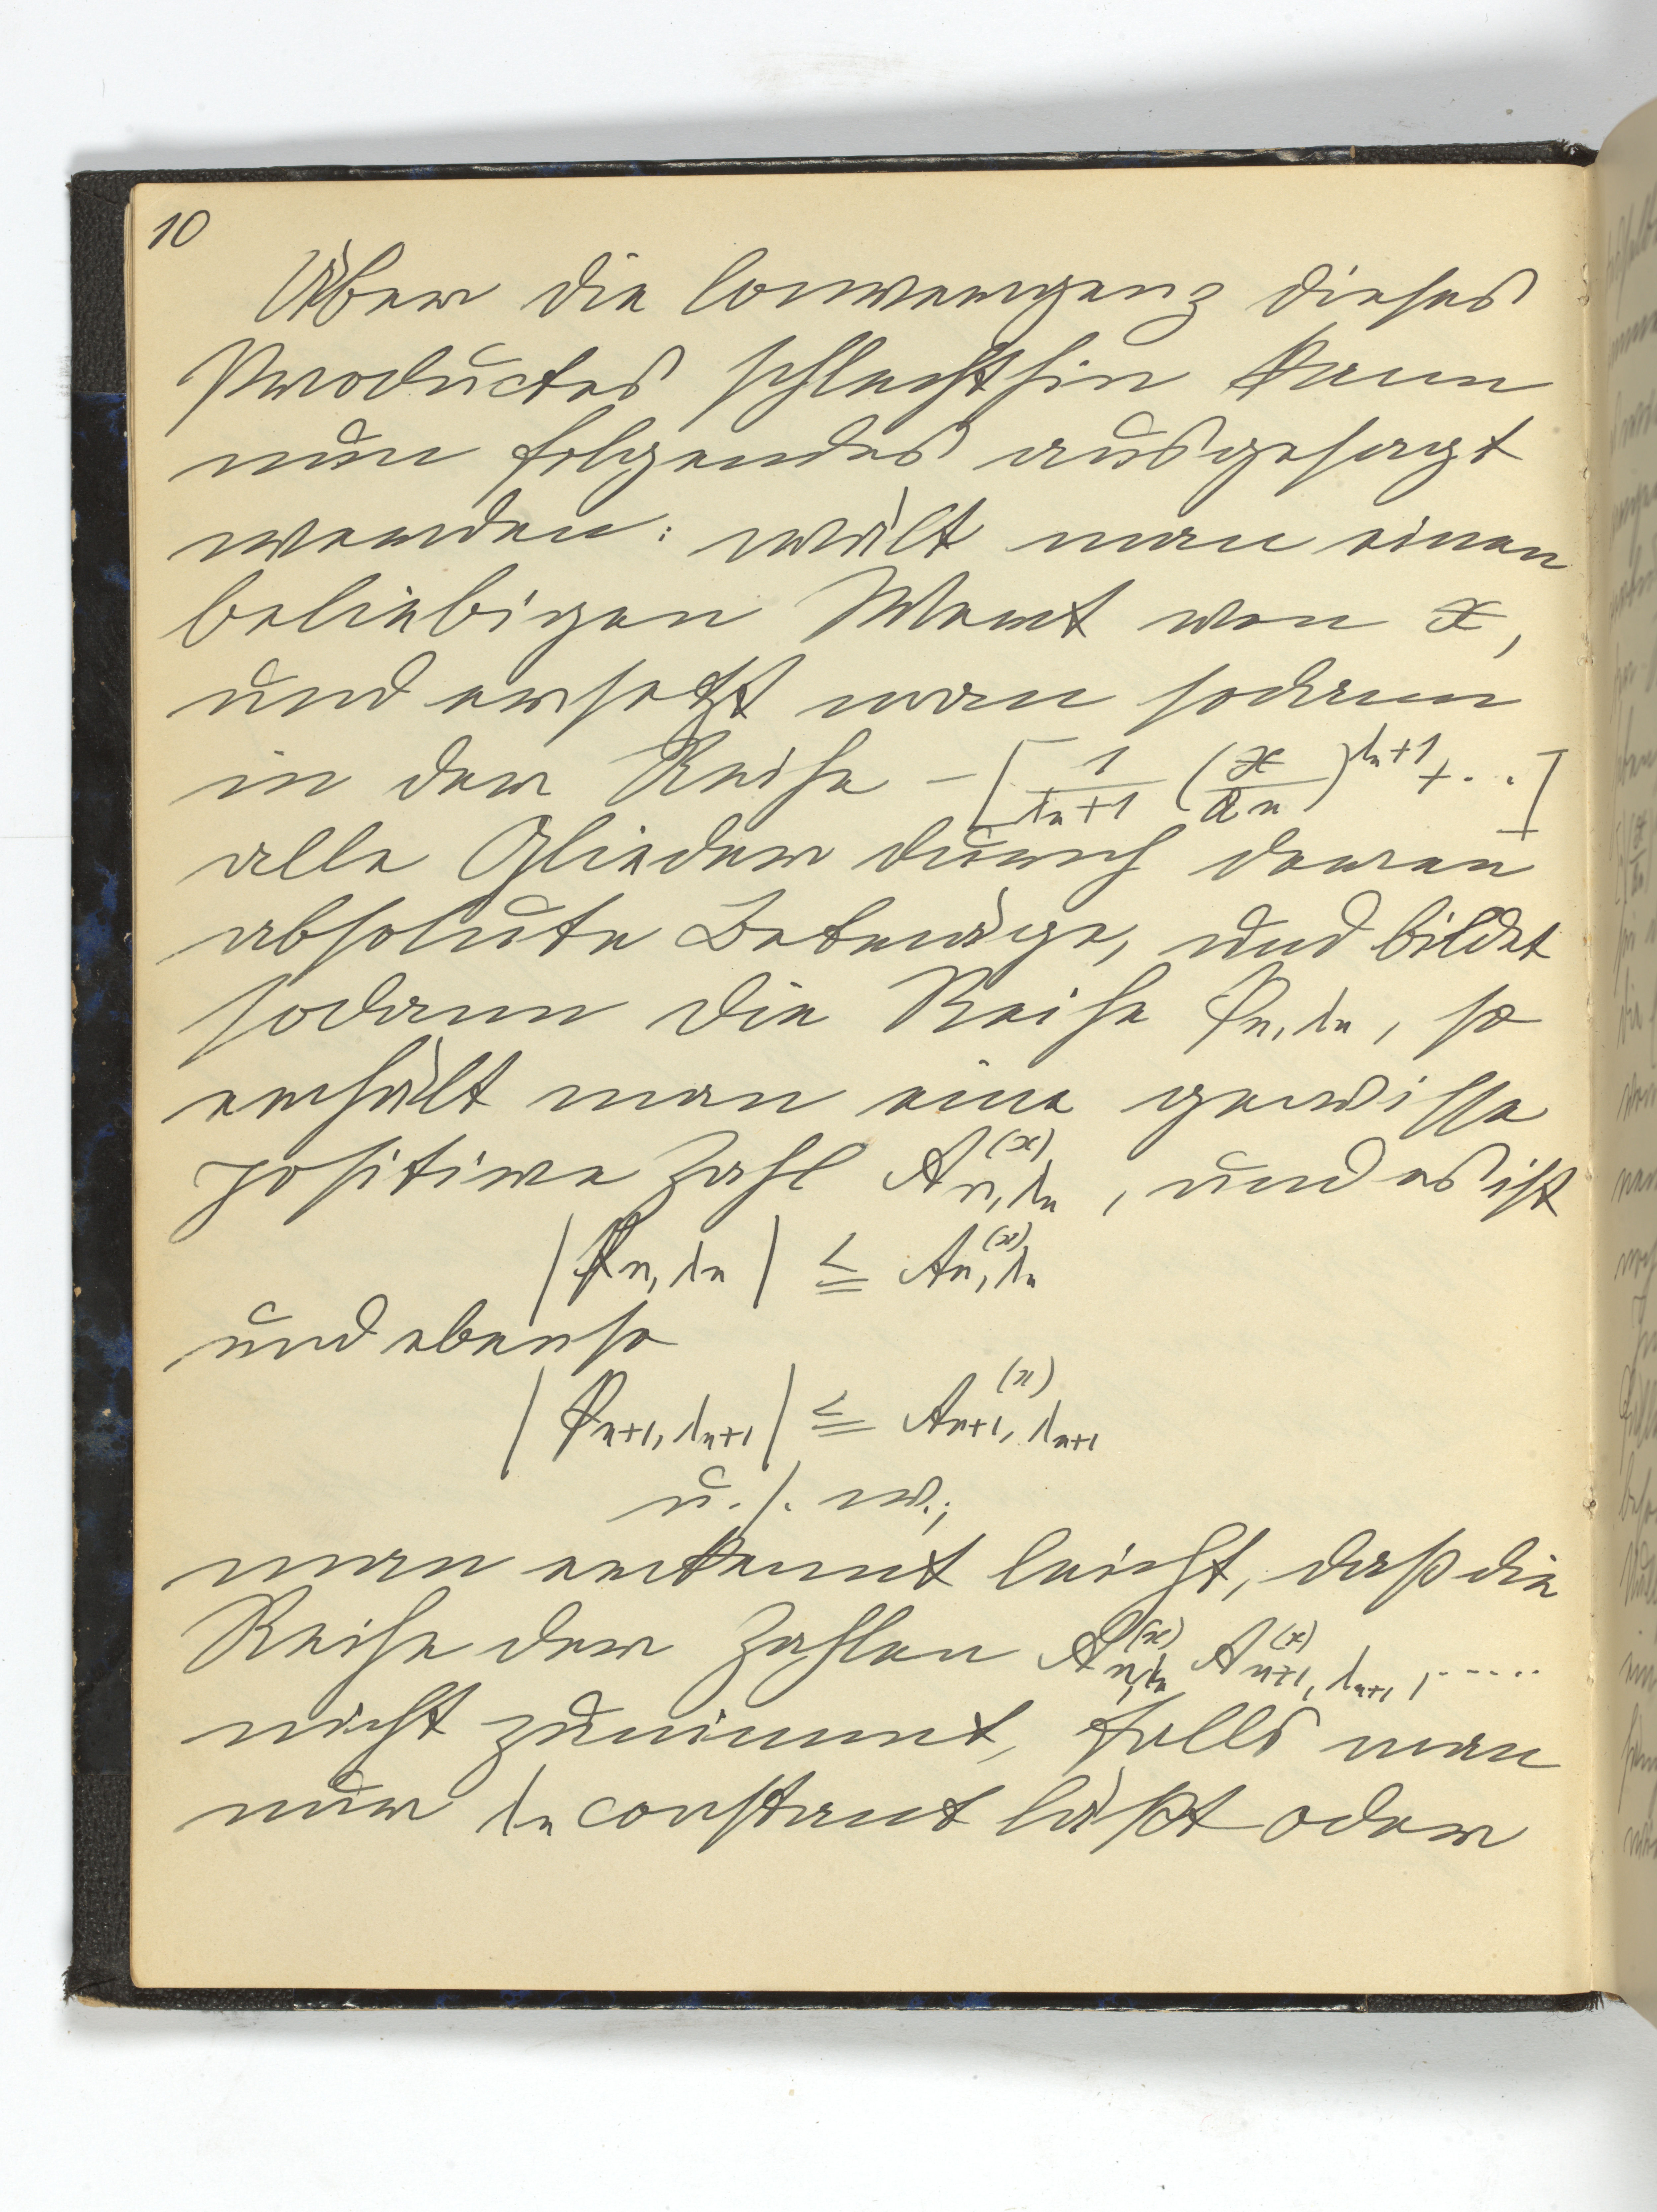 10
Über die Convergenz dieses
Productes schlechthin kann
nun folgendes ausgesagt
werden: wält man einen
beliebigen Wert von x,
und ersetzt man sodann
in der Reihe -[1/(λₙ+1) (x/aₙ)^(λₙ+1) + ...]
alle Glieder durch deren
absolute Beträge, und bildet
sodann die Reihe φₙ,λₙ, so
erhält man eine gewisse
positive Zahl Aₙ,λₙ^(x), und es ist
|φₙ,λₙ| ≦ Aₙ,λₙ^(x)
und ebenso
|φₙ₊₁,λₙ₊₁| ≦ Aₙ₊₁,λₙ₊₁^(x)
u. s. w.;
man erkennt leicht, daß die
Reihe der Zahlen Aₙ,λₙ^(x) Aₙ₊₁,λₙ₊₁^(x), .....
nicht zunimmt, falls man
nur λₙ constant läßt oder